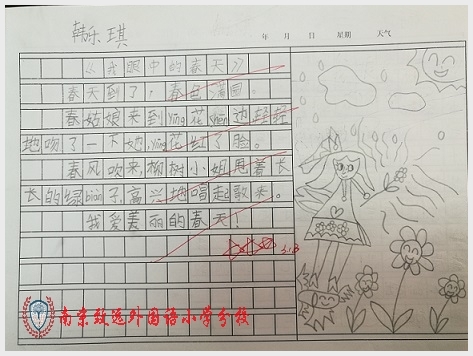 韩乐琪
年 月 日 星期 天气
《我眼中的春天》
春天到了，春色满园。
春姑娘来到yīng花shù边轻轻
地吻了一下她，yīng花红了脸。
春风吹来，柳树小姐甩着长
长的绿biàn子，高兴地唱起歌来。
我爱美丽的春天！
3.13
南京致远外国语小学分校